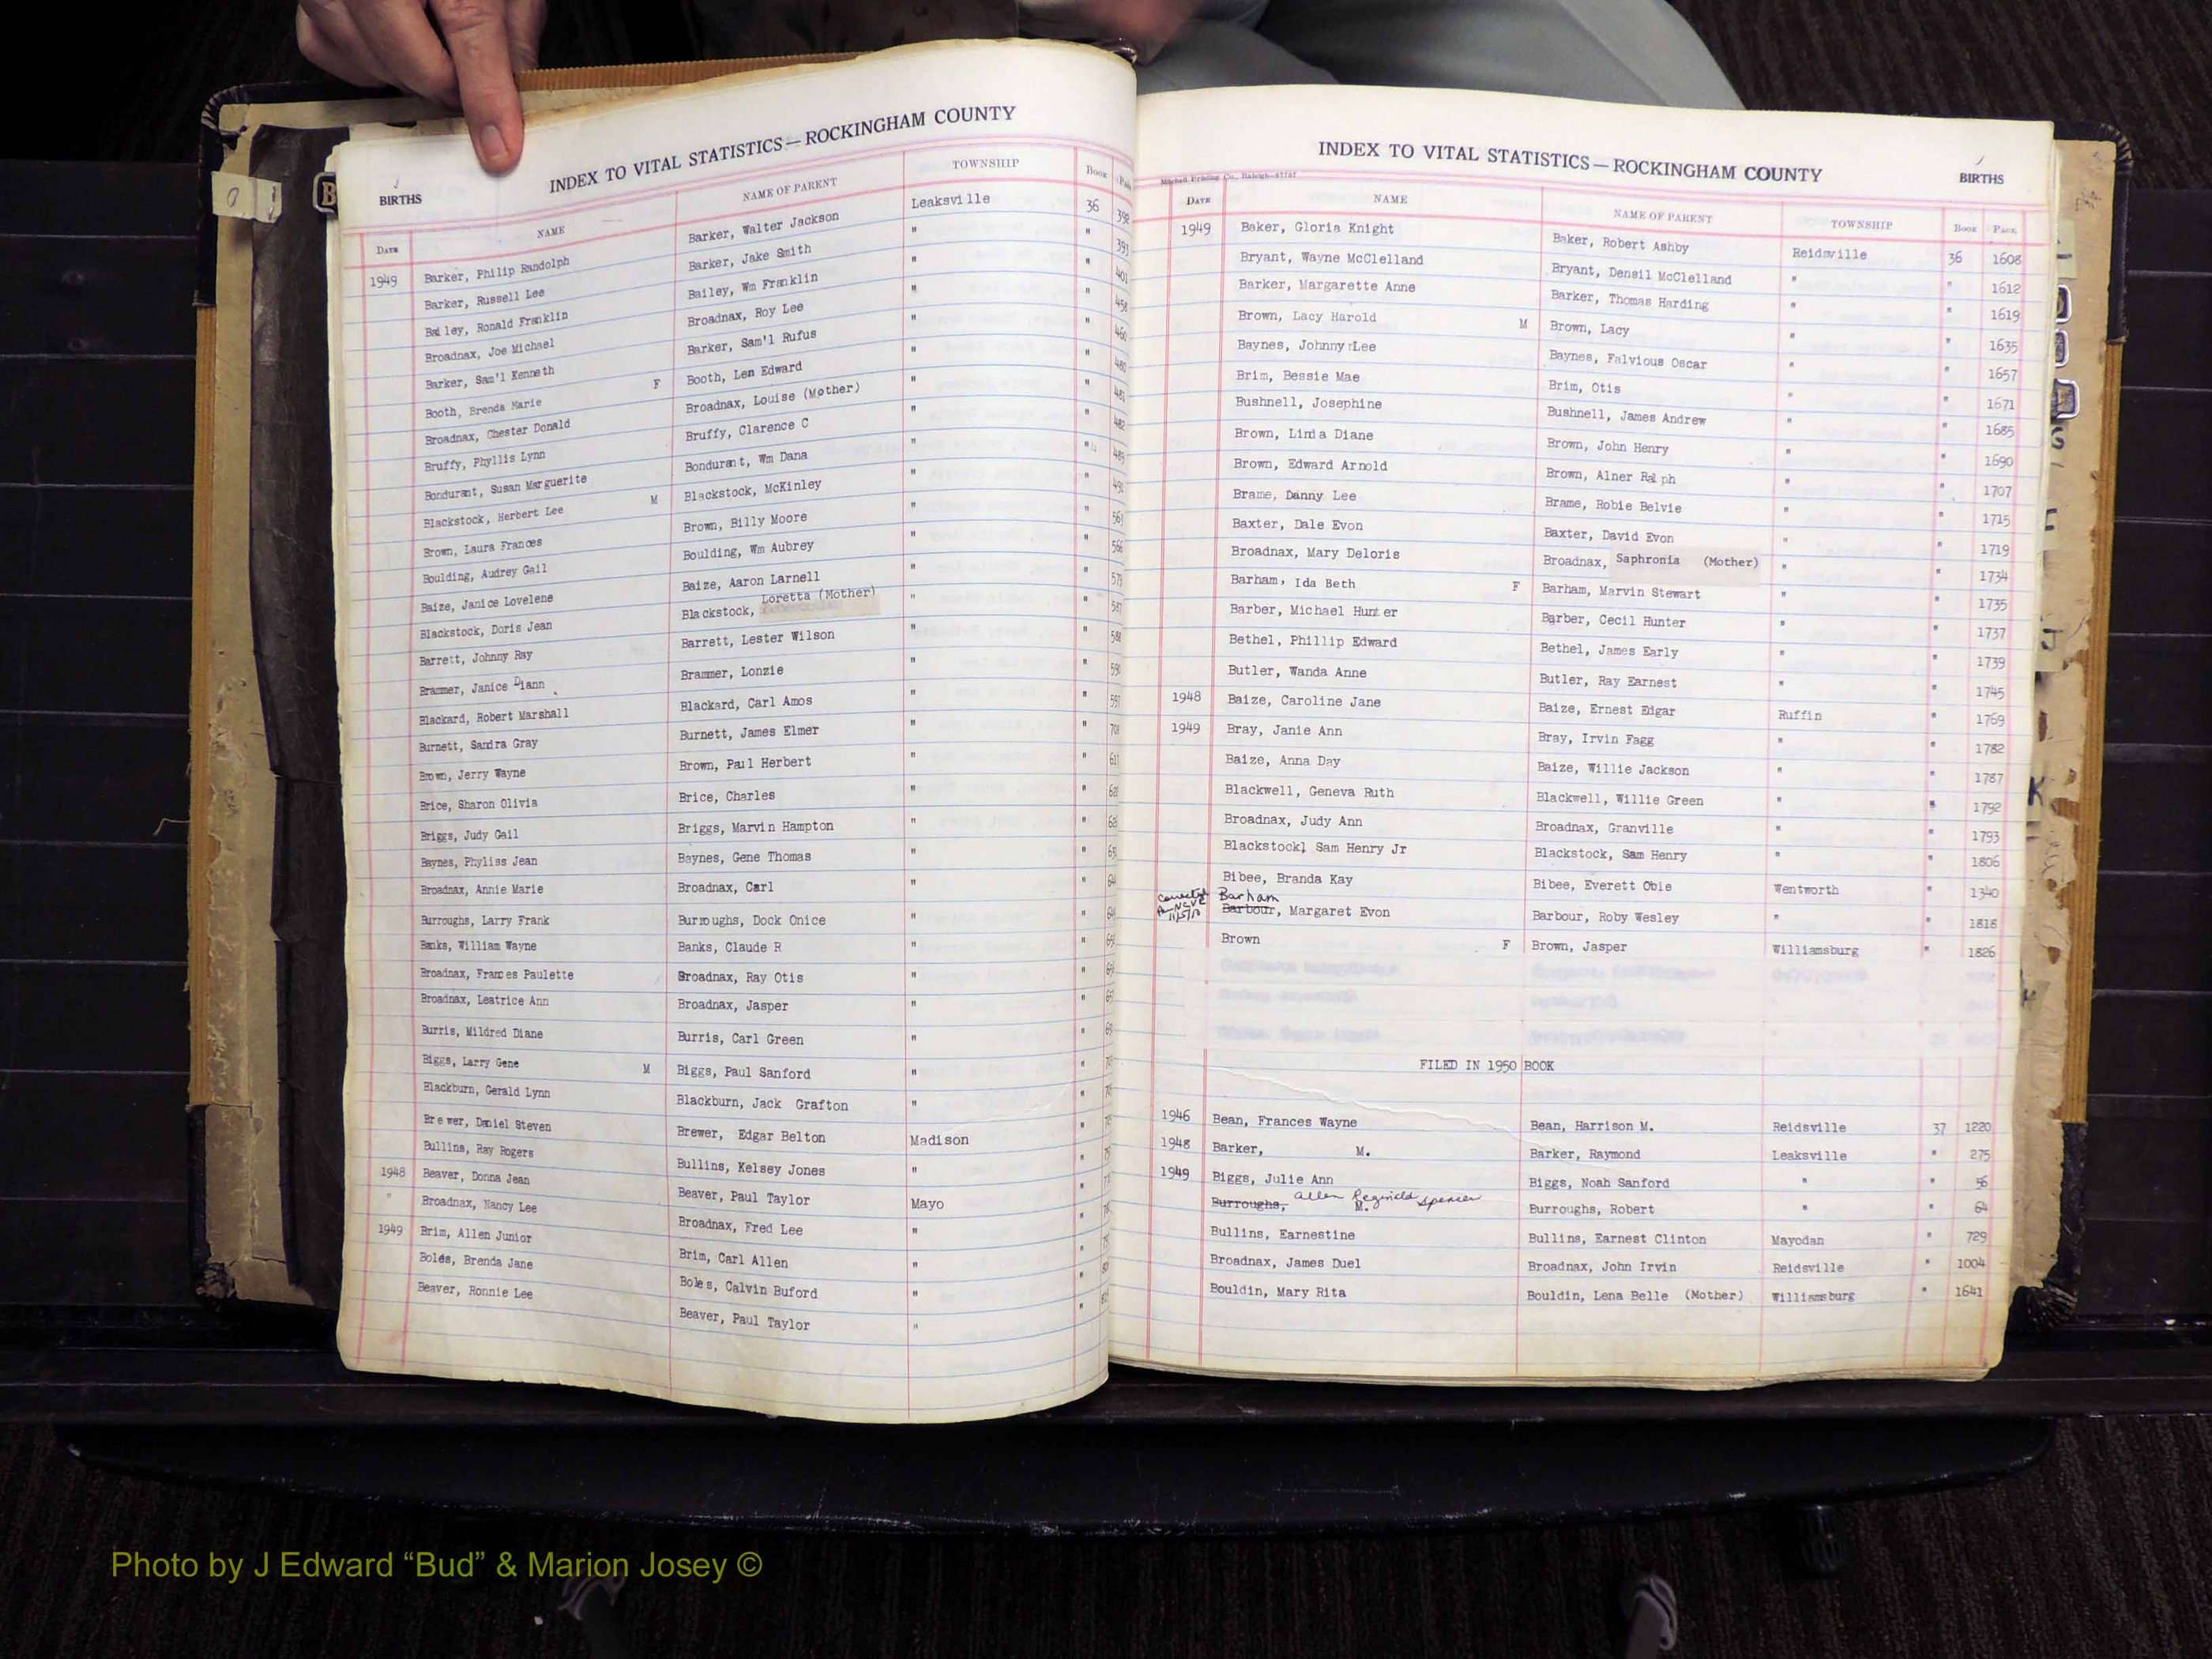 INDEX TO VITAL STATISTICS — ROCKINGHAM COUNTY
BIRTHS
DATE NAME NAME OF PARENT TOWNSHIP BOOK
1949 Barker, Philip Randolph Barker, Walter Jackson Leaksville 36
Barker, Russell Lee Barker, Jake Smith " "
Bailey, Ronald Franklin Bailey, Wm Franklin " "
Broadnax, Joe Michael Broadnax, Roy Lee " "
Barker, Sam'l Kenneth Barker, Sam'l Rufus " "
Booth, Brenda Marie F Booth, Len Edward " "
Broadnax, Chester Donald Broadnax, Louise (Mother) " "
Bruffy, Phyllis Lynn Bruffy, Clarence C " "
Bondurant, Susan Marguerite Bondurant, Wm Dana " "
Blackstock, Herbert Lee M Blackstock, McKinley " "
Brown, Laura Frances Brown, Billy Moore " "
Boulding, Audrey Gail Boulding, Wm Aubrey " "
Baize, Janice Lovelene Baize, Aaron Larnell " "
Blackstock, Doris Jean Blackstock, Loretta (Mother) " "
Barrett, Johnny Ray Barrett, Lester Wilson " "
Brammer, Janice Diann Brammer, Lonzie " "
Blackard, Robert Marshall Blackard, Carl Amos " "
Burnett, Sandra Gray Burnett, James Elmer " "
Brown, Jerry Wayne Brown, Paul Herbert " "
Brice, Sharon Olivia Brice, Charles " "
Briggs, Judy Gail Briggs, Marvin Hampton " "
Baynes, Phyliss Jean Baynes, Gene Thomas " "
Broadnax, Annie Marie Broadnax, Carl " "
Burroughs, Larry Frank Burroughs, Dock Onice " "
Banks, William Wayne Banks, Claude R " "
Broadnax, Frances Paulette Broadnax, Ray Otis " "
Broadnax, Leatrice Ann Broadnax, Jasper " "
Burris, Mildred Diane Burris, Carl Green " "
Biggs, Larry Gene M Biggs, Paul Sanford " "
Blackburn, Gerald Lynn Blackburn, Jack Grafton " "
Brewer, Daniel Steven Brewer, Edgar Belton Madison "
Bullins, Ray Rogers Bullins, Kelsey Jones " "
1948 Beaver, Donna Jean Beaver, Paul Taylor Mayo "
" Broadnax, Nancy Lee Broadnax, Fred Lee " "
1949 Brim, Allen Junior Brim, Carl Allen " "
Boles, Brenda Jane Boles, Calvin Buford " "
Beaver, Ronnie Lee Beaver, Paul Taylor " "
INDEX TO VITAL STATISTICS — ROCKINGHAM COUNTY
BIRTHS
Mitchell Printing Co., Raleigh
DATE NAME NAME OF PARENT TOWNSHIP BOOK PAGE
1949 Baker, Gloria Knight Baker, Robert Ashby Reidsville 36 1608
Bryant, Wayne McClelland Bryant, Densil McClelland " " 1612
Barker, Margarette Anne Barker, Thomas Harding " " 1619
Brown, Lacy Harold M Brown, Lacy " " 1635
Baynes, Johnny Lee Baynes, Falvious Oscar " " 1657
Brim, Bessie Mae Brim, Otis " " 1671
Bushnell, Josephine Bushnell, James Andrew " " 1685
Brown, Linda Diane Brown, John Henry " " 1690
Brown, Edward Arnold Brown, Alner Ralph " " 1707
Brame, Danny Lee Brame, Robie Belvie " " 1715
Baxter, Dale Evon Baxter, David Evon " " 1719
Broadnax, Mary Deloris Broadnax, Saphronia (Mother) " " 1734
Barham, Ida Beth F Barham, Marvin Stewart " " 1735
Barber, Michael Hunter Barber, Cecil Hunter " " 1737
Bethel, Phillip Edward Bethel, James Early " " 1739
Butler, Wanda Anne Butler, Ray Earnest " " 1745
1948 Baize, Caroline Jane Baize, Ernest Edgar Ruffin " 1769
1949 Bray, Janie Ann Bray, Irvin Fagg " " 1782
Baize, Anna Day Baize, Willie Jackson " " 1787
Blackwell, Geneva Ruth Blackwell, Willie Green " " 1792
Broadnax, Judy Ann Broadnax, Granville " " 1793
Blackstock, Sam Henry Jr Blackstock, Sam Henry " " 1806
Bibee, Branda Kay Bibee, Everett Obie Wentworth " 1340
corrected Barham
Barbour, Margaret Evon Barbour, Roby Wesley " " 1818
Brown F Brown, Jasper Williamsburg " 1826
FILED IN 1950 BOOK
1946 Bean, Frances Wayne Bean, Harrison M. Reidsville 37 1220
1948 Barker, M. Barker, Raymond Leaksville " 275
1949 Biggs, Julie Ann Biggs, Noah Sanford " " 56
Burroughs, Allen Reginald Spencer M. Burroughs, Robert " " 64
Bullins, Earnestine Bullins, Earnest Clinton Mayodan " 729
Broadnax, James Duel Broadnax, John Irvin Reidsville " 1004
Bouldin, Mary Rita Bouldin, Lena Belle (Mother) Williamsburg " 1641
Photo by J Edward “Bud” & Marion Josey ©